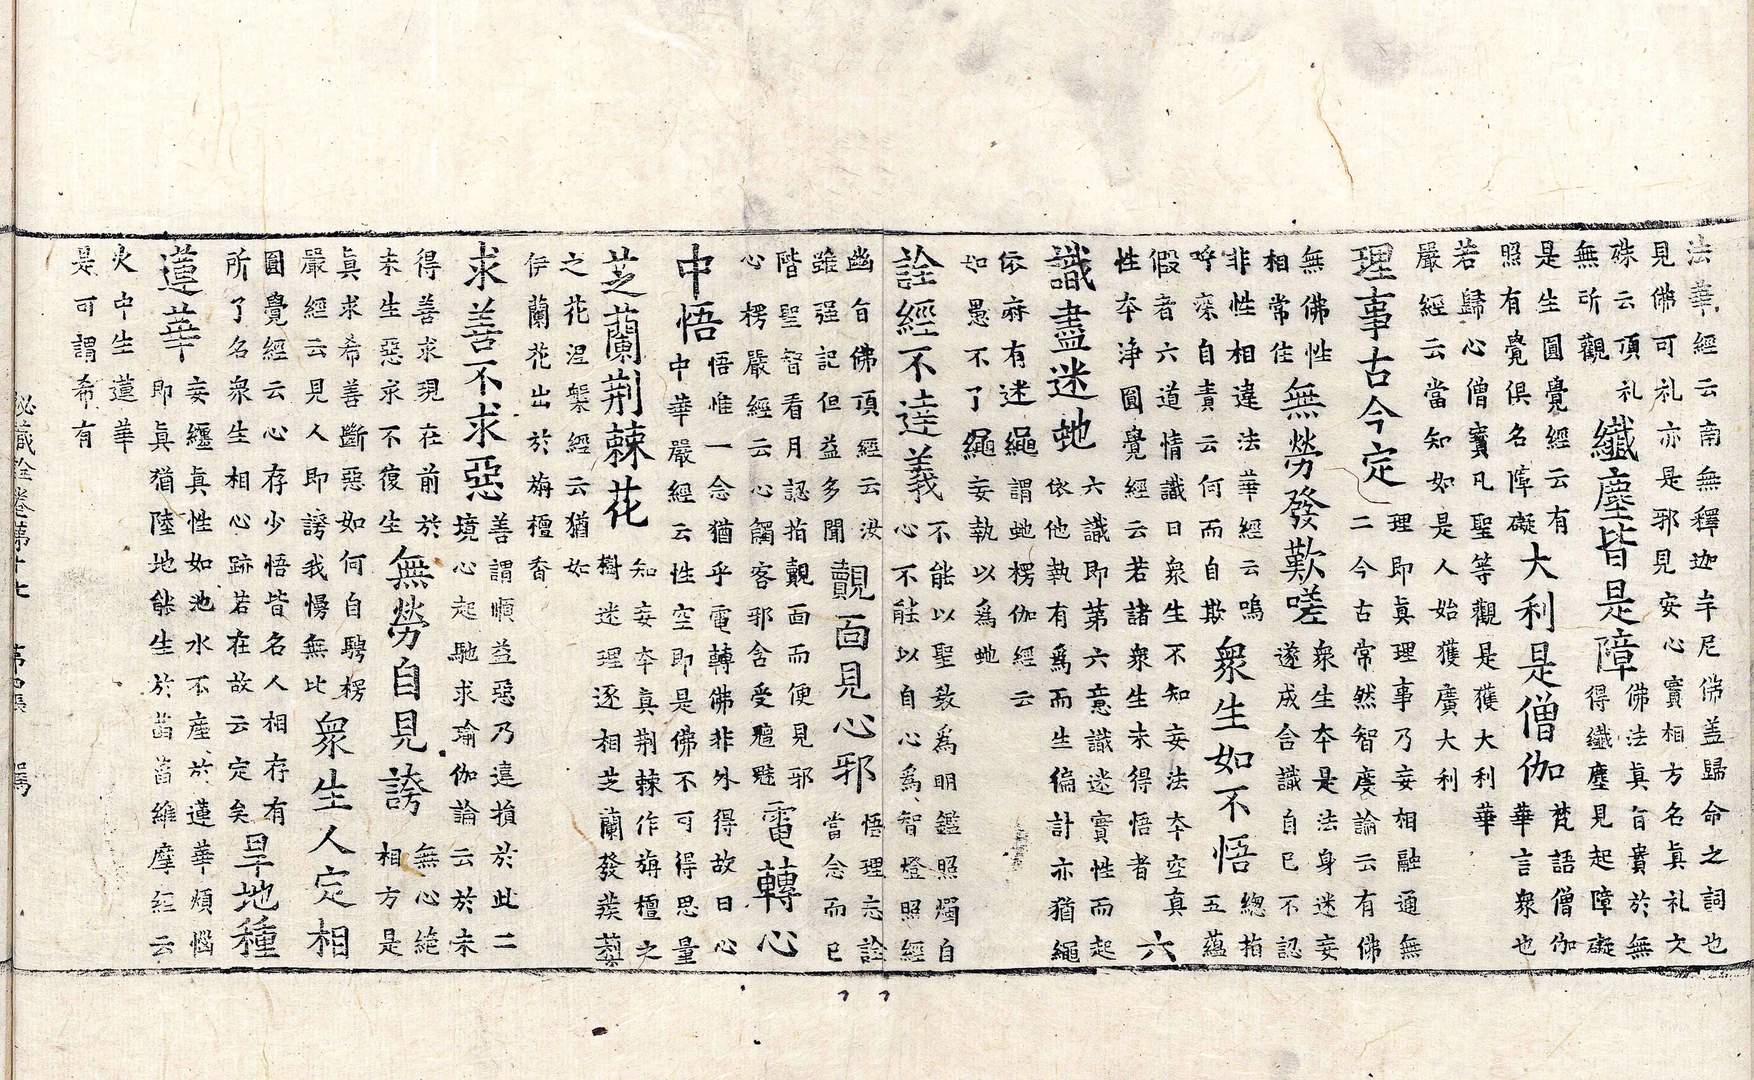 法華經云南無釋迦牟尼佛盖歸命之詞也
見佛可礼亦是邪見安心實相方名真礼文
殊云頂礼
無所觀
纖塵皆是障
佛法真旨貴於無
得纖塵見起障礙
是生圓覺經云有
照有覺俱名障礙
大利是僧伽
梵語僧伽
華言衆也
若歸心僧寶凡聖等觀是獲大利華
嚴經云當知如是人始獲廣大利
理事古今定
理即真理事乃妄相融通無
二今古常然智度論云有佛
無佛性
相常住
無勞發歎嗟
衆生本是法身迷妄
遂成含識自己不認
非性相違法華經云嗚
呼深自責云何而自欺
衆生如不悟
總指
五蘊
假者六道情識日衆生不知妄法本空真
性本净圓覺經云若諸衆生未得悟者
六
識盡迷虵
六識即第六意識迷實性而起
依他執有爲而生徧計亦猶繩
依麻有迷繩謂虵楞伽經云
如愚不了繩妄執以爲虵
詮經不達義
不能以聖教爲明鑑照燭自
心不能以自心爲智燈照經
幽旨佛頂經云汝
雖强記但益多聞
覿面見心邪
悟理忘詮
當念而已
階聖智看月認指覿面而便見邪
心楞嚴經云心觸客邪含受魑魅
電轉心
中悟
悟惟一念猶乎電轉佛非外得故日心
中華嚴經云性空即是佛不可得思量
芝蘭荆棘花
知妄本真荆棘作旃檀之
樹迷理逐相芝蘭發蒺蔾
之花涅槃經云猶如
伊蘭花出於旃檀香
求善不求惡
善謂順益惡乃違損於此二
境心起馳求瑜伽論云於未
得善求現在前於
未生惡求不復生
無勞自見誇
無心絶
相方是
真求希善斷惡如何自騁楞
嚴經云見人即謗我慢無比
衆生人定相
圓覺經云心存少悟皆名人相存有
所了名衆生相心跡若在故云定矣
旱地種
蓮華
妄纏真性如池水不產於蓮華煩惱
即真猶陸地能生於菡萏維摩經云
火中生蓮華
是可謂希有
秘藏詮卷第十七 第四張